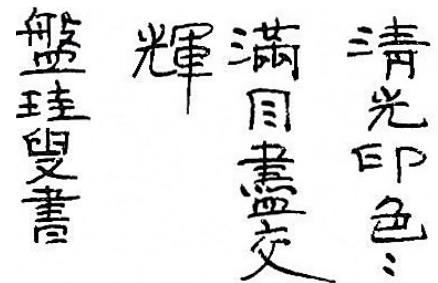 清光印色〻
滿目盡交
輝
盤珪叟書